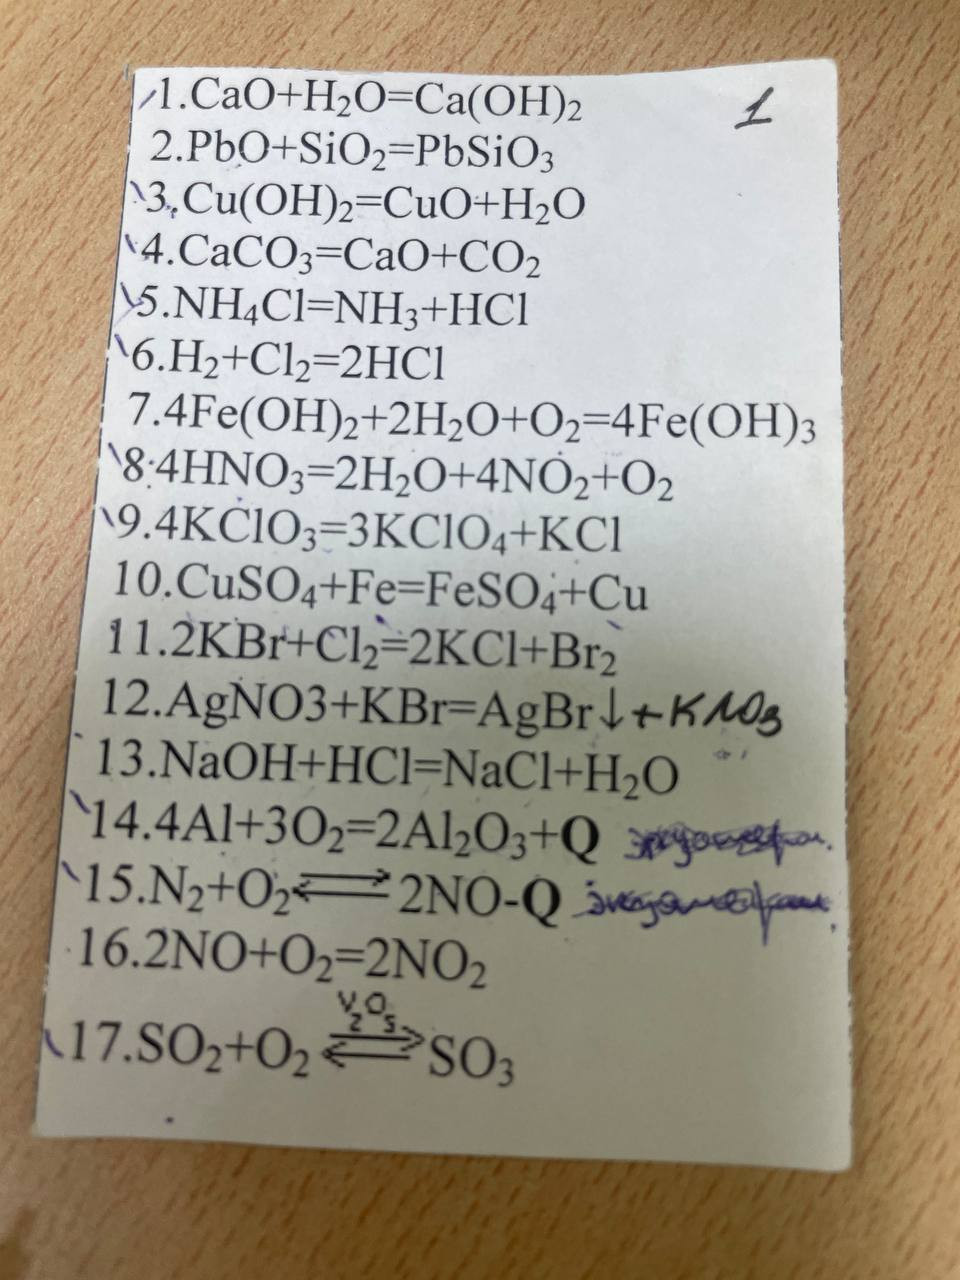 1
1.CaO+H₂O=Ca(OH)₂
2.PbO+SiO₂=PbSiO₃
3.Cu(OH)₂=CuO+H₂O
4.CaCO₃=CaO+CO₂
5.NH₄Cl=NH₃+HCl
6.H₂+Cl₂=2HCl
7.4Fe(OH)₂+2H₂O+O₂=4Fe(OH)₃
8.4HNO₃=2H₂O+4NO₂+O₂
9.4KClO₃=3KClO₄+KCl
10.CuSO₄+Fe=FeSO₄+Cu
11.2KBr+Cl₂=2KCl+Br₂
12.AgNO3+KBr=AgBr↓+KNO₃
13.NaOH+HCl=NaCl+H₂O
14.4Al+3O₂=2Al₂O₃+Q
15.N₂+O₂⇄2NO-Q
16.2NO+O₂=2NO₂
V₂O₅
17.SO₂+O₂⇄SO₃